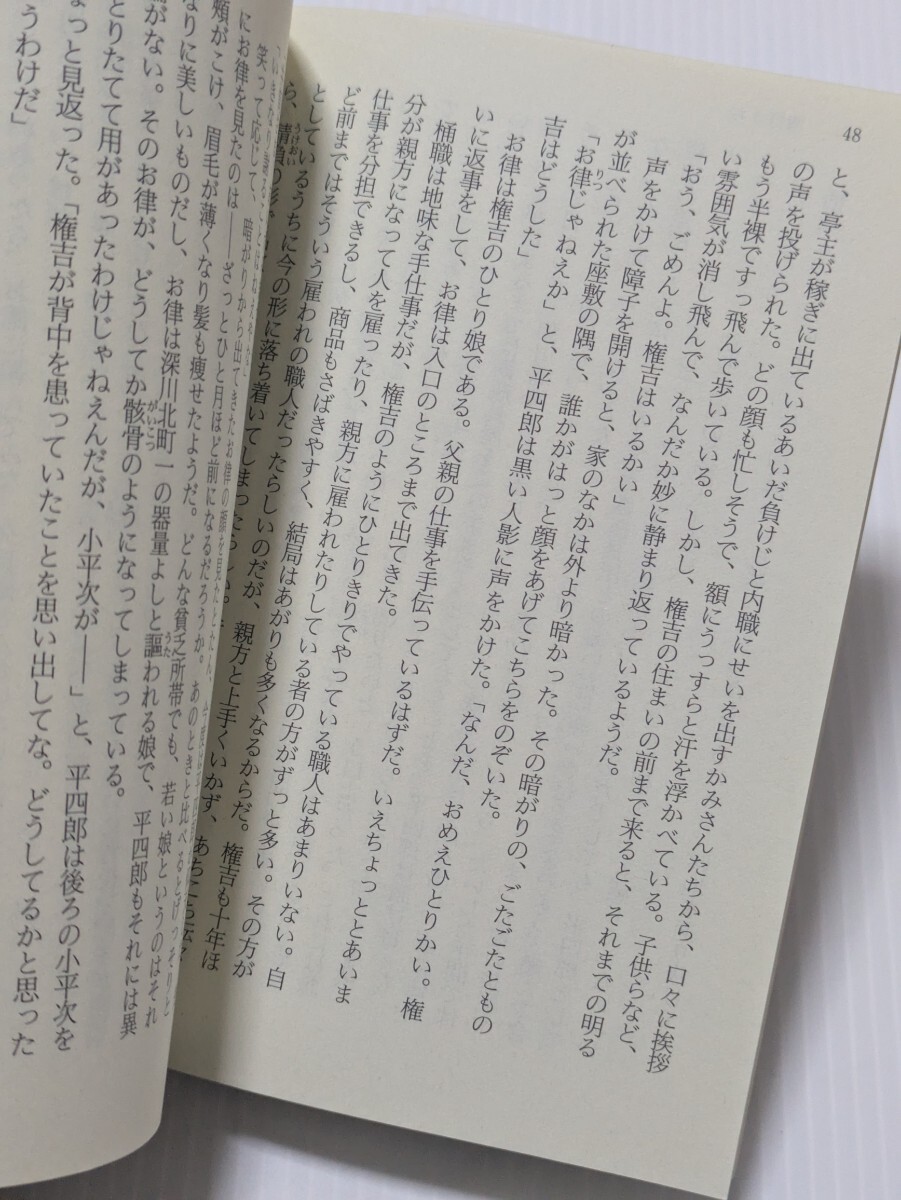 48
と、亭主が稼ぎに出ているあいだ負けじと内職にせいを出すかみさんたちから、口々に挨拶
の声を投げられた。どの顔も忙しそうで、額にうっすらと汗を浮かべている。子供らなど、
もう半裸ですっ飛んで歩いている。しかし、権吉の住まいの前まで来ると、それまでの明る
い雰囲気が消し飛んで、なんだか妙に静まり返っているようだ。
「おう、ごめんよ。権吉はいるかい」
声をかけて障子を開けると、家のなかは外より暗かった。その暗がりの、ごたごたともの
が並べられた座敷の隅で、誰かがはっと顔をあげてこちらをのぞいた。
「お律じゃねえか」と、平四郎は黒い人影に声をかけた。「なんだ、おめえひとりかい。権
吉はどうした」
お律は権吉のひとり娘である。父親の仕事を手伝っているはずだ。いえちょっととあいま
いに返事をして、お律は入口のところまで出てきた。
桶職は地味な手仕事だが、権吉のようにひとりきりでやっている職人はあまりいない。自
分が親方になって人を雇ったり、親方に雇われたりしている者の方がずっと多い。その方が
仕事を分担できるし、商品もさばきやすく、結局はあがりも多くなるからだ。権吉も十年ほ
ど前まではそういう雇われの職人だったらしいのだが、親方と上手くいかず、あちこち転々
としているうちに今の形に落ち着いてしまったらし
ら、請負の形
「いきなり
笑って応じて、暗がりから出てきたお律の顔を見たとたん、
にお律を見たのは――ざっとひと月ほど前になるだろうか。あのときと比べるとげっそりと
頬がこけ、眉毛が薄くなり髪も痩せたようだ。どんな貧乏所帯でも、若い娘というのはそれ
なりに美しいものだし、お律は深川北町一の器量よしと謳われる娘で、平四郎もそれには異
がない。そのお律が、どうしてか骸骨のようになってしまっている。
とりたてて用があったわけじゃねえんだが、小平次が――」と、平四郎は後ろの小平次を
ょっと見返った。「権吉が背中を患っていたことを思い出してな。どうしてるかと思った
うわけだ」